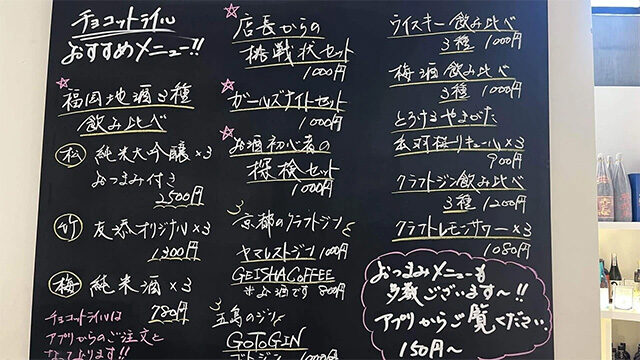 チョコットライル
おすすめメニュー!!
福岡地酒3種
飲み比べ
松 純米大吟醸×3
おつまみ付き
2500円
竹 友添オリジナル×3
1300円
梅 純米酒×3
780円
チョコットライルは
アプリからのご注文と
なっております!!
店長からの
挑戦状セット
1000円
ガールズナイトセット
1000円
お酒初心者の
探検セット
1000円
京都のクラフトジン
ヤマレストジン 1000円
GEISHA COFFEE
※お酒です 800円
五島のジン
GOTOGIN
ゴトジン 1000円
ライスキー飲み比べ
3種 1000円
梅酒飲み比べ
3種 1000円
とろけるやまがた
出羽桜リキュール×3
900円
クラフトジン飲み比べ
3種 1200円
クラフトレモンサワー×3
1080円
おつまみメニューも
多数ございます〜!!
アプリからご覧ください。
150円〜